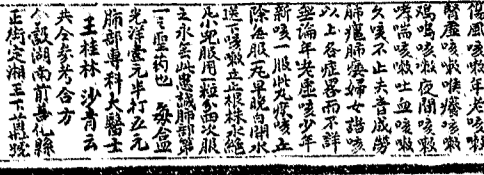 傷風咳嗽年老咳嗽
腎虛咳嗽喉癢咳嗽
鷄鳴咳嗽夜間咳嗽
哮喘咳嗽吐血咳嗽
久咳不止失音成癆
肺癰肺痿婦女諸咳
以上各症畧而不詳
無論年老虛咳少年
新咳一服此丸痰咳立
除每服一丸早晚白開水
送下咳嗽立止根株永絕
小兒服用一粒分四次服
之永不此患誠肺部第
一之聖葯也 每盒
光洋壹元半打五元
肺部專科大醫士
王桂林 沙青云
共仝參考合方
湖南前善化縣
正街定湘王下首